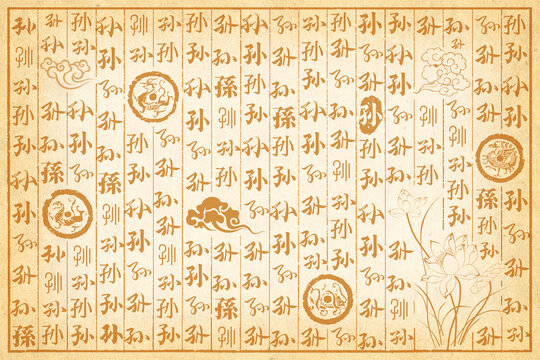 孙孙孙孙孙孙孙孙孙孙
孙孙孙孙孙孫孙孙孙
孙孙孙孙孙孙孙
孙孙孙孙孙孙
孙孙孙孙孙孙孙孙孙孙孙
孙孙孙孙孙孙孙孙孙孙孙孙
孙孙孙孙孙孙孙孙孙孙孙孙
孙孙孙孙孙孙孙孙孙孙
孙孙孙孫孙孙孙孙孙孙孙孙
孙孙孙孙孙孙孙孙孙孙孙孙
孙孙孙孙孙孙孙孙孙孫孙
孙孙孙孙孙孙孙孙孙孙孙
孙孙孙孙孙孙孙孙孙孙孙孙
孙孙孙孙孙孙孙孙孙孙
孙孙孙孙孙孙孫孙孙孙孙孙
孙孙孙孙孙孙孙孙孙
孙孙孙孙孫孙孙孙孙
孙孙孙孙孙孙孙孙孙孙孙孫